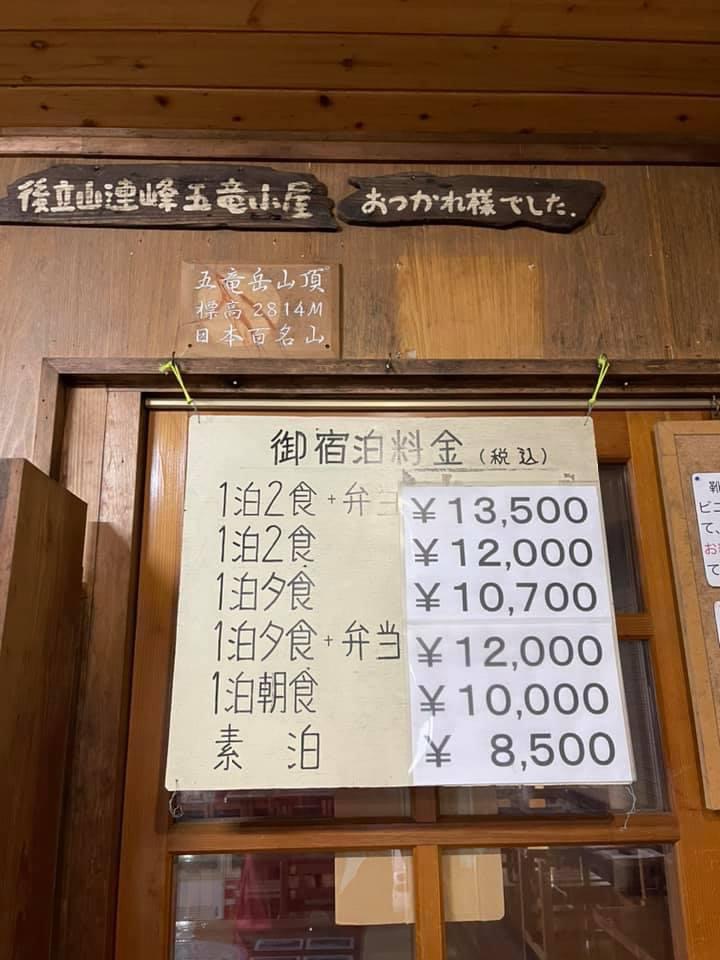 後立山連峰五竜小屋
おつかれ様でした.
五竜岳山頂
標高2814M
日本百名山
御宿泊料金(税込)
1泊2食+弁当 ¥13,500
1泊2食 ¥12,000
1泊夕食 ¥10,700
1泊夕食+弁当 ¥12,000
1泊朝食 ¥10,000
素泊 ¥8,500
靴
ビニ
て、
お
て